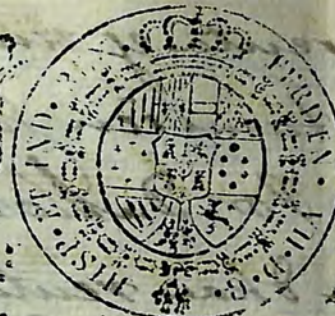 FERDIN · VII · D · G · HISP · ET IND · R ·